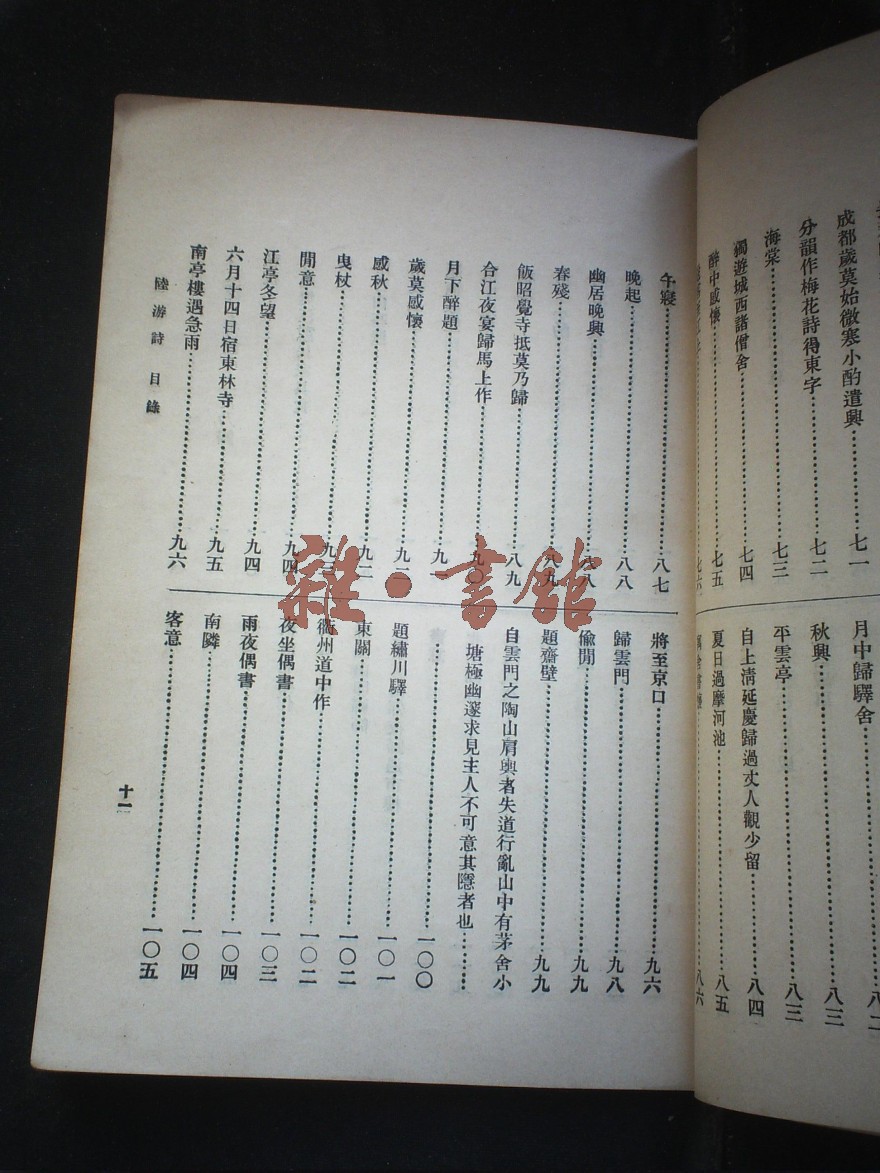 成都歲莫始微寒小酌遣興…………七一
分韻作梅花詩得東字…………七二
海棠…………七三
獨遊城西諸僧舍…………七四
醉中感懷…………七五
七六
月中歸驛舍…………八二
秋興…………八三
平雲亭…………八三
自上清延慶歸過丈人觀少留…………八四
夏日過摩河池…………八五
八六
午寢…………八七
晚起…………八八
幽居晚興…………八八
春殘…………八九
飯昭覺寺抵莫乃歸…………八九
合江夜宴歸馬上作…………九〇
月下醉題…………九一
歲莫感懷…………九二
感秋…………九二
曳杖…………九三
閒意…………九四
江亭冬望…………九四
六月十四日宿東林寺…………九五
南亭樓遇急雨…………九六
將至京口…………九六
歸雲門…………九八
偸閒…………九九
題齋壁…………九九
自雲門之陶山肩輿者失道行亂山中有茅舍小
塘極幽邃求見主人不可意其隱者也…………
…………一〇〇
題繡川驛…………一〇一
東關…………一〇二
衢州道中作…………一〇二
夜坐偶書…………一〇三
雨夜偶書…………一〇四
南隣…………一〇四
客意…………一〇五
陸游詩 目錄
十一
雜·書館